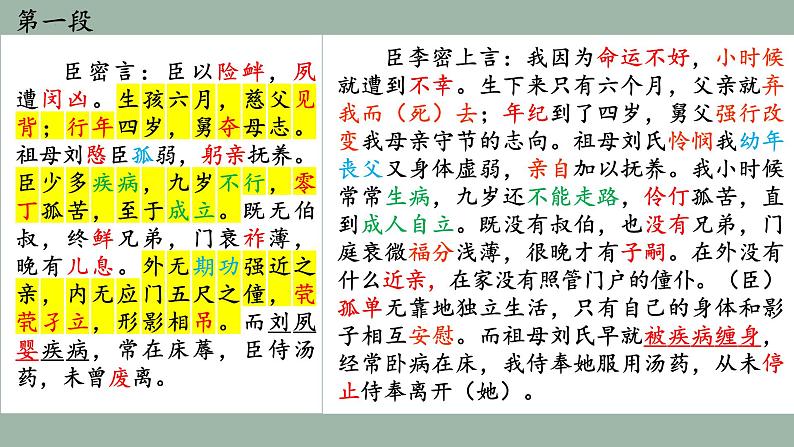 第一段
臣密言：臣以险衅，夙
遭闵凶。生孩六月，慈父见
背；行年四岁，舅夺母志。
祖母刘愍臣孤弱，躬亲抚养。
臣少多疾病，九岁不行，零
丁孤苦，至于成立。既无伯
叔，终鲜兄弟，门衰祚薄，
晚有儿息。外无期功强近之
亲，内无应门五尺之僮，茕
茕孑立，形影相吊。而刘夙
婴疾病，常在床蓐，臣侍汤
药，未曾废离。
臣李密上言：我因为命运不好，小时候
就遭到不幸。生下来只有六个月，父亲就弃
我而（死）去；年纪到了四岁，舅父强行改
变我母亲守节的志向。祖母刘氏怜悯我幼年
丧父又身体虚弱，亲自加以抚养。我小时候
常常生病，九岁还不能走路，伶仃孤苦，直
到成人自立。既没有叔伯，也没有兄弟，门
庭衰微福分浅薄，很晚才有子嗣。在外没有
什么近亲，在家没有照管门户的僮仆。（臣）
孤单无靠地独立生活，只有自己的身体和影
子相互安慰。而祖母刘氏早就被疾病缠身，
经常卧病在床，我侍奉她服用汤药，从未停
止侍奉离开（她）。